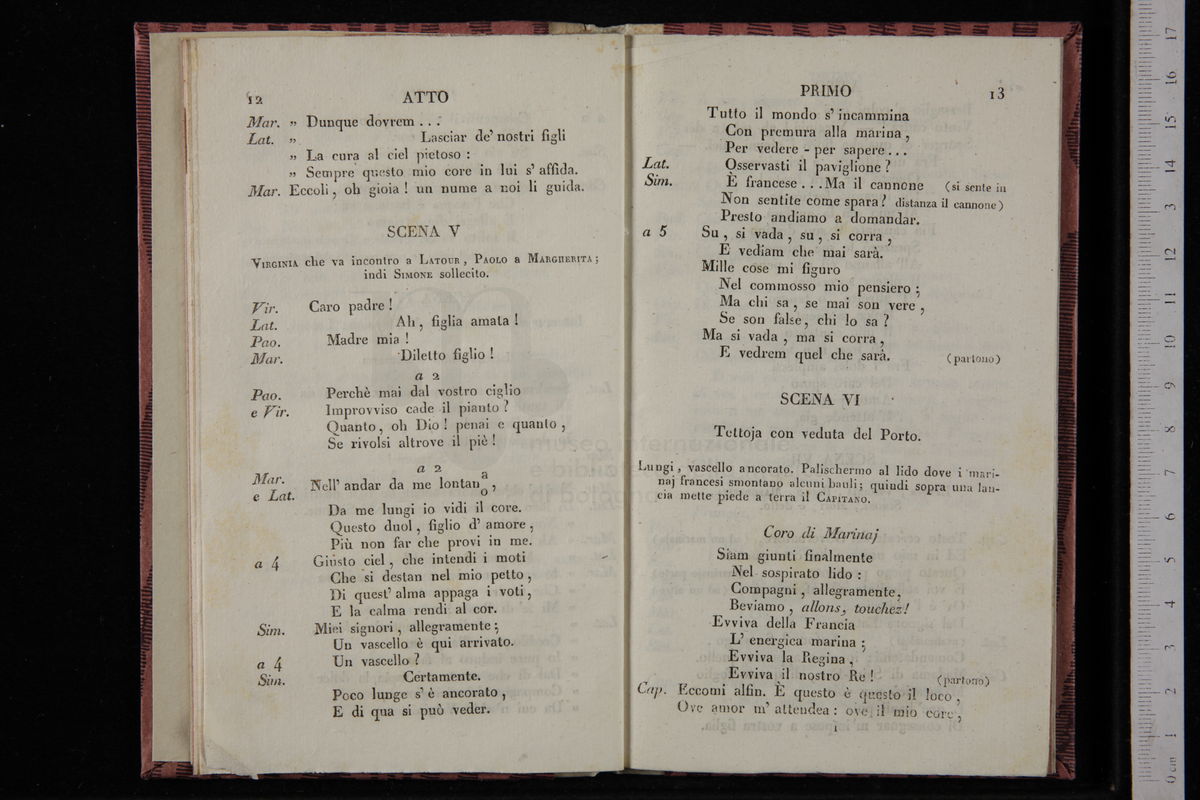 12 ATTO
Mar. „ Dunque dovrem . . .
Lat. „ Lasciar de' nostri figli
„ La cura al ciel pietoso :
„ Sempre questo mio core in lui s' affida.
Mar. Eccoli, oh gioia ! un nume a noi li guida.
SCENA V
VIRGINIA che va incontro a LATOUR, PAOLO a MARGHERITA ;
indi SIMONE sollecito.
Vir. Caro padre !
Lat. Ah, figlia amata !
Pao. Madre mia !
Mar. Diletto figlio !
a 2
Pao. Perchè mai dal vostro ciglio
e Vir. Improvviso cade il pianto ?
Quanto, oh Dio ! penai e quanto,
Se rivolsi altrove il piè !
a 2
Mar. e Lat. Nell' andar da me lontan a/o,
Da me lungi io vidi il core.
Questo duol, figlio d' amore,
Più non far che provi in me.
a 4 Giusto ciel, che intendi i moti
Che si destan nel mio petto,
Di quest' alma appaga i voti,
E la calma rendi al cor.
Sim. Miei signori, allegramente ;
Un vascello è qui arrivato.
a 4 Un vascello ?
Sim. Certamente.
Poco lunge s' è ancorato,
E di qua si può veder.
PRIMO 13
Tutto il mondo s' incammina
Con premura alla marina,
Per vedere - per sapere . . .
Lat. Osservasti il paviglione ?
Sim. È francese . . . Ma il cannone (si sente in
Non sentite come spara ? distanza il cannone)
Presto andiamo a domandar.
a 5 Su, si vada, su, si corra,
E vediam che mai sarà.
Mille cose mi figuro
Nel commosso mio pensiero ;
Ma chi sa, se mai son vere,
Se son false, chi lo sa ?
Ma si vada, ma si corra,
E vedrem quel che sarà. (partono)
SCENA VI
Tettoja con veduta del Porto.
Lungi, vascello ancorato. Palischermo al lido dove i mari-
naj francesi smontano alcuni bauli; quindi sopra una lan-
cia mette piede a terra il CAPITANO.
Coro di Marinaj
Siam giunti finalmente
Nel sospirato lido :
Compagni, allegramente,
Beviamo, allons, touchez!
Evviva della Francia
L' energica marina ;
Evviva la Regina,
Evviva il nostro Re ! (partono)
Cap. Eccomi alfin. È questo è questo il loco,
Ove amor m' attendea : ove il mio core,
1
museo internazionale
e biblioteca
di bologna
0 cm 1 2 3 4 5 6 7 8 9 10 11 12 13 14 15 16 17